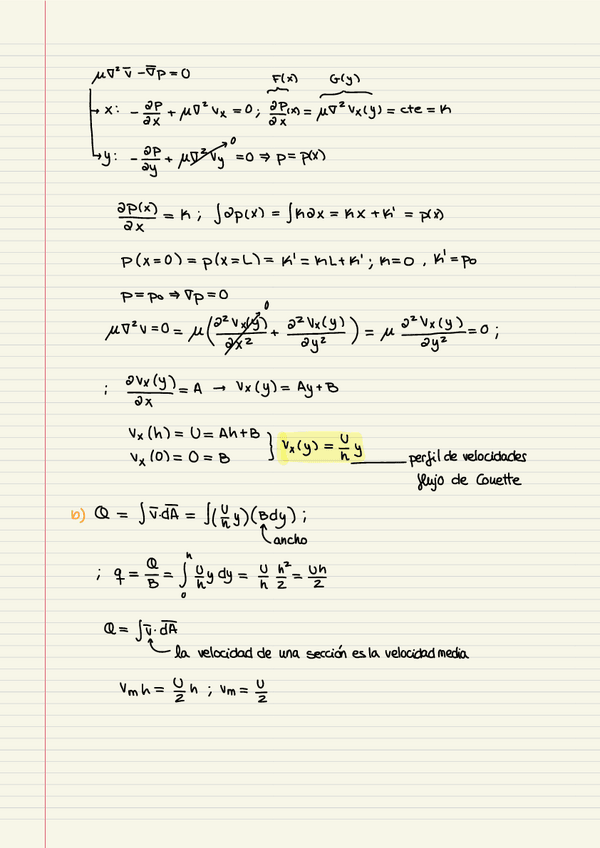 μ∇²v̄ - ∇̄p = 0
F(x) G(y)
x: - ∂P/∂x + μ∇²vx = 0 ; ∂P/∂x (x) = μ∇²vx(y) = cte = K
y: - ∂P/∂y + μ∇²vy = 0 ⇒ p = p(x)
0
∂P(x)/∂x = K ; ∫∂p(x) = ∫K∂x = Kx + K' = p(x)
P(x=0) = p(x=L) = K' = KL + K' ; K=0 , K' = p₀
p = p₀ ⇒ ∇p = 0
0
μ∇²v = 0 = μ(∂²vx(y)/∂x² + ∂²vx(y)/∂y²) = μ ∂²vx(y)/∂y² = 0 ;
; ∂vx(y)/∂x = A → vx(y) = Ay + B
vx(h) = U = Ah + B
vx(0) = 0 = B } vx(y) = U/h y
perfil de velocidades
flujo de Couette
b) Q = ∫v̄·dA̅ = ∫(U/h y)(Bdy) ;
ancho
; q = Q/B = ∫₀ʰ U/h y dy = U/h h²/2 = Uh/2
Q = ∫v̄·dA̅
la velocidad de una sección es la velocidad media
vm h = U/2 h ; vm = U/2